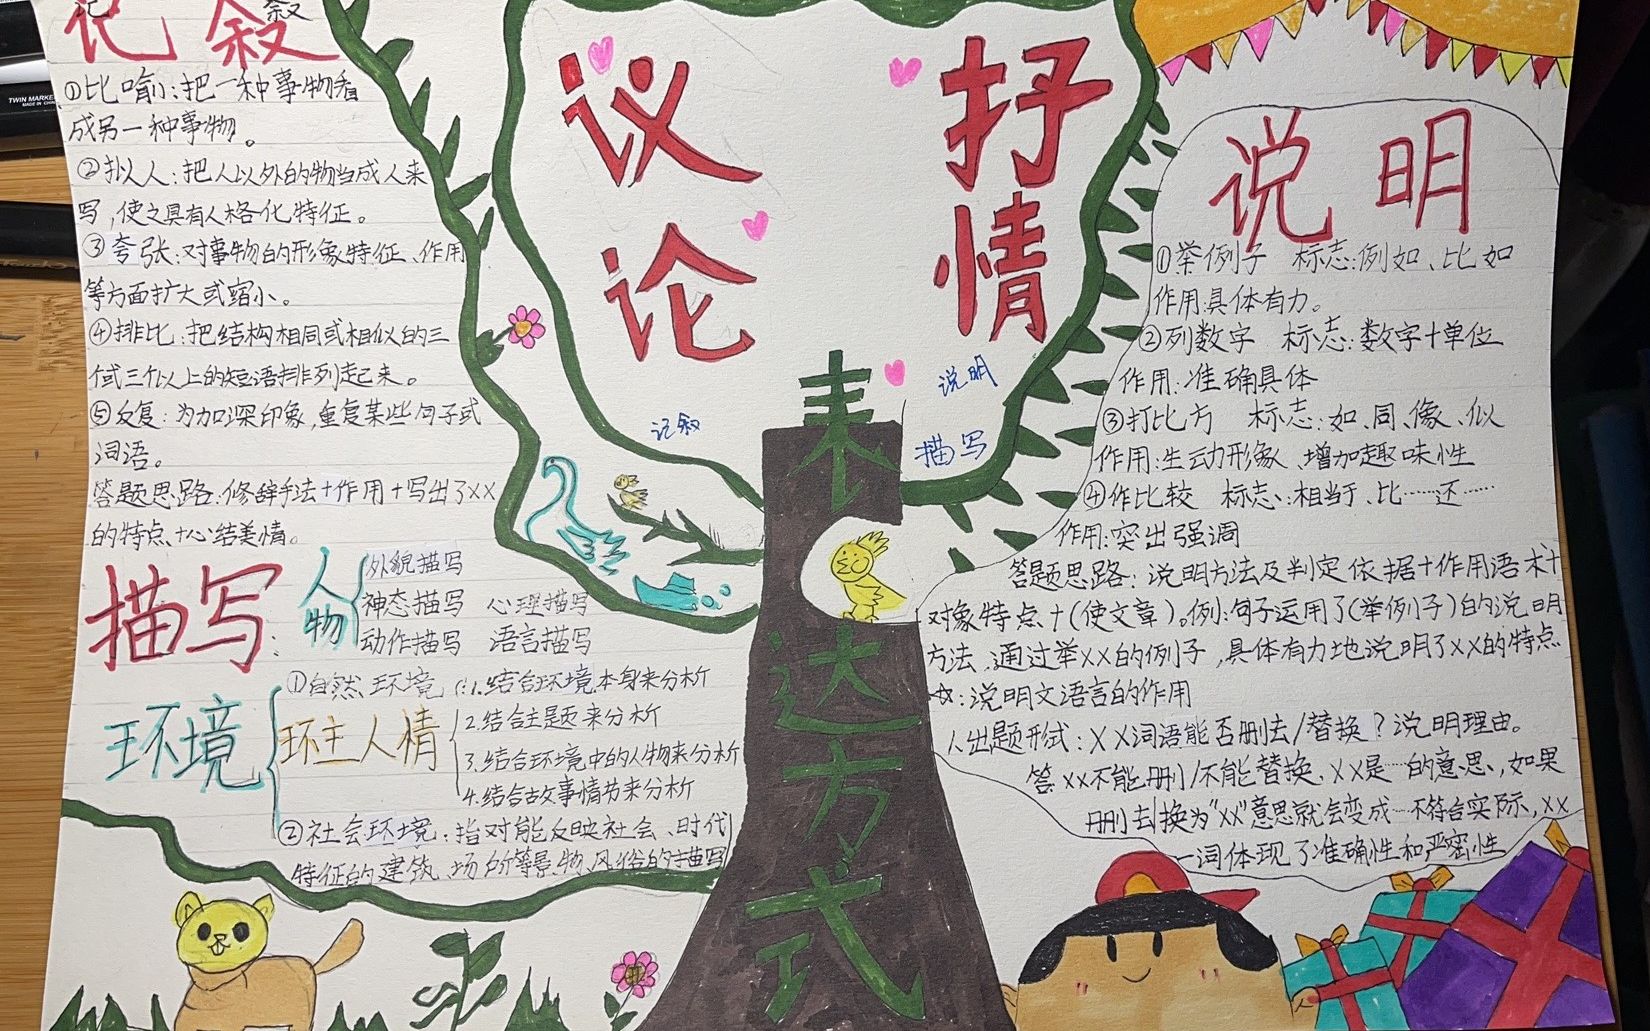 记叙
记 叙
TWIN MARKE
MADE IN CHIN
①比喻:把一种事物看
成另一种事物。
②拟人:把人以外的物当成人来
写,使之具有人格化特征。
③夸张:对事物的形象特征、作用
等方面扩大或缩小。
④排比:把结构相同或相似的三
个或三个以上的短语排列起来。
⑤反复:为加深印象,重复某些句子或
词语。
答题思路:修辞手法+作用+写出了XX
的特点+心结美情。
描写:
人物
外貌描写
神态描写 心理描写
动作描写 语言描写
环境
①自然环境:1.结合环境本身来分析
环主人情
2.结合主题来分析
3.结合环境中的人物来分析
4.结合故事情节来分析
②社会环境:指对能反映社会、时代
特征的建筑、场所等景物、风俗的描写
议论
抒情
记叙
说明
描写
表达方式
说明
①举例子 标志:例如、比如
作用:具体有力。
②列数字 标志:数字+单位
作用:准确具体
③打比方 标志:如、同、像、似
作用:生动形象、增加趣味性
④作比较 标志:相当于、比……还……
作用:突出强调
答题思路:说明方法及判定依据+作用语术+
对象特点+(使文章)。例:句子运用了(举例子)的说明
方法,通过举XX的例子,具体有力地说明了XX的特点
☆:说明文语言的作用
1.出题形式:XX词语能否删去/替换?说明理由。
答:XX不能删/不能替换,XX是…的意思,如果
删去/换为"XX"意思就会变成…不符合实际,XX
一词体现了准确性和严密性